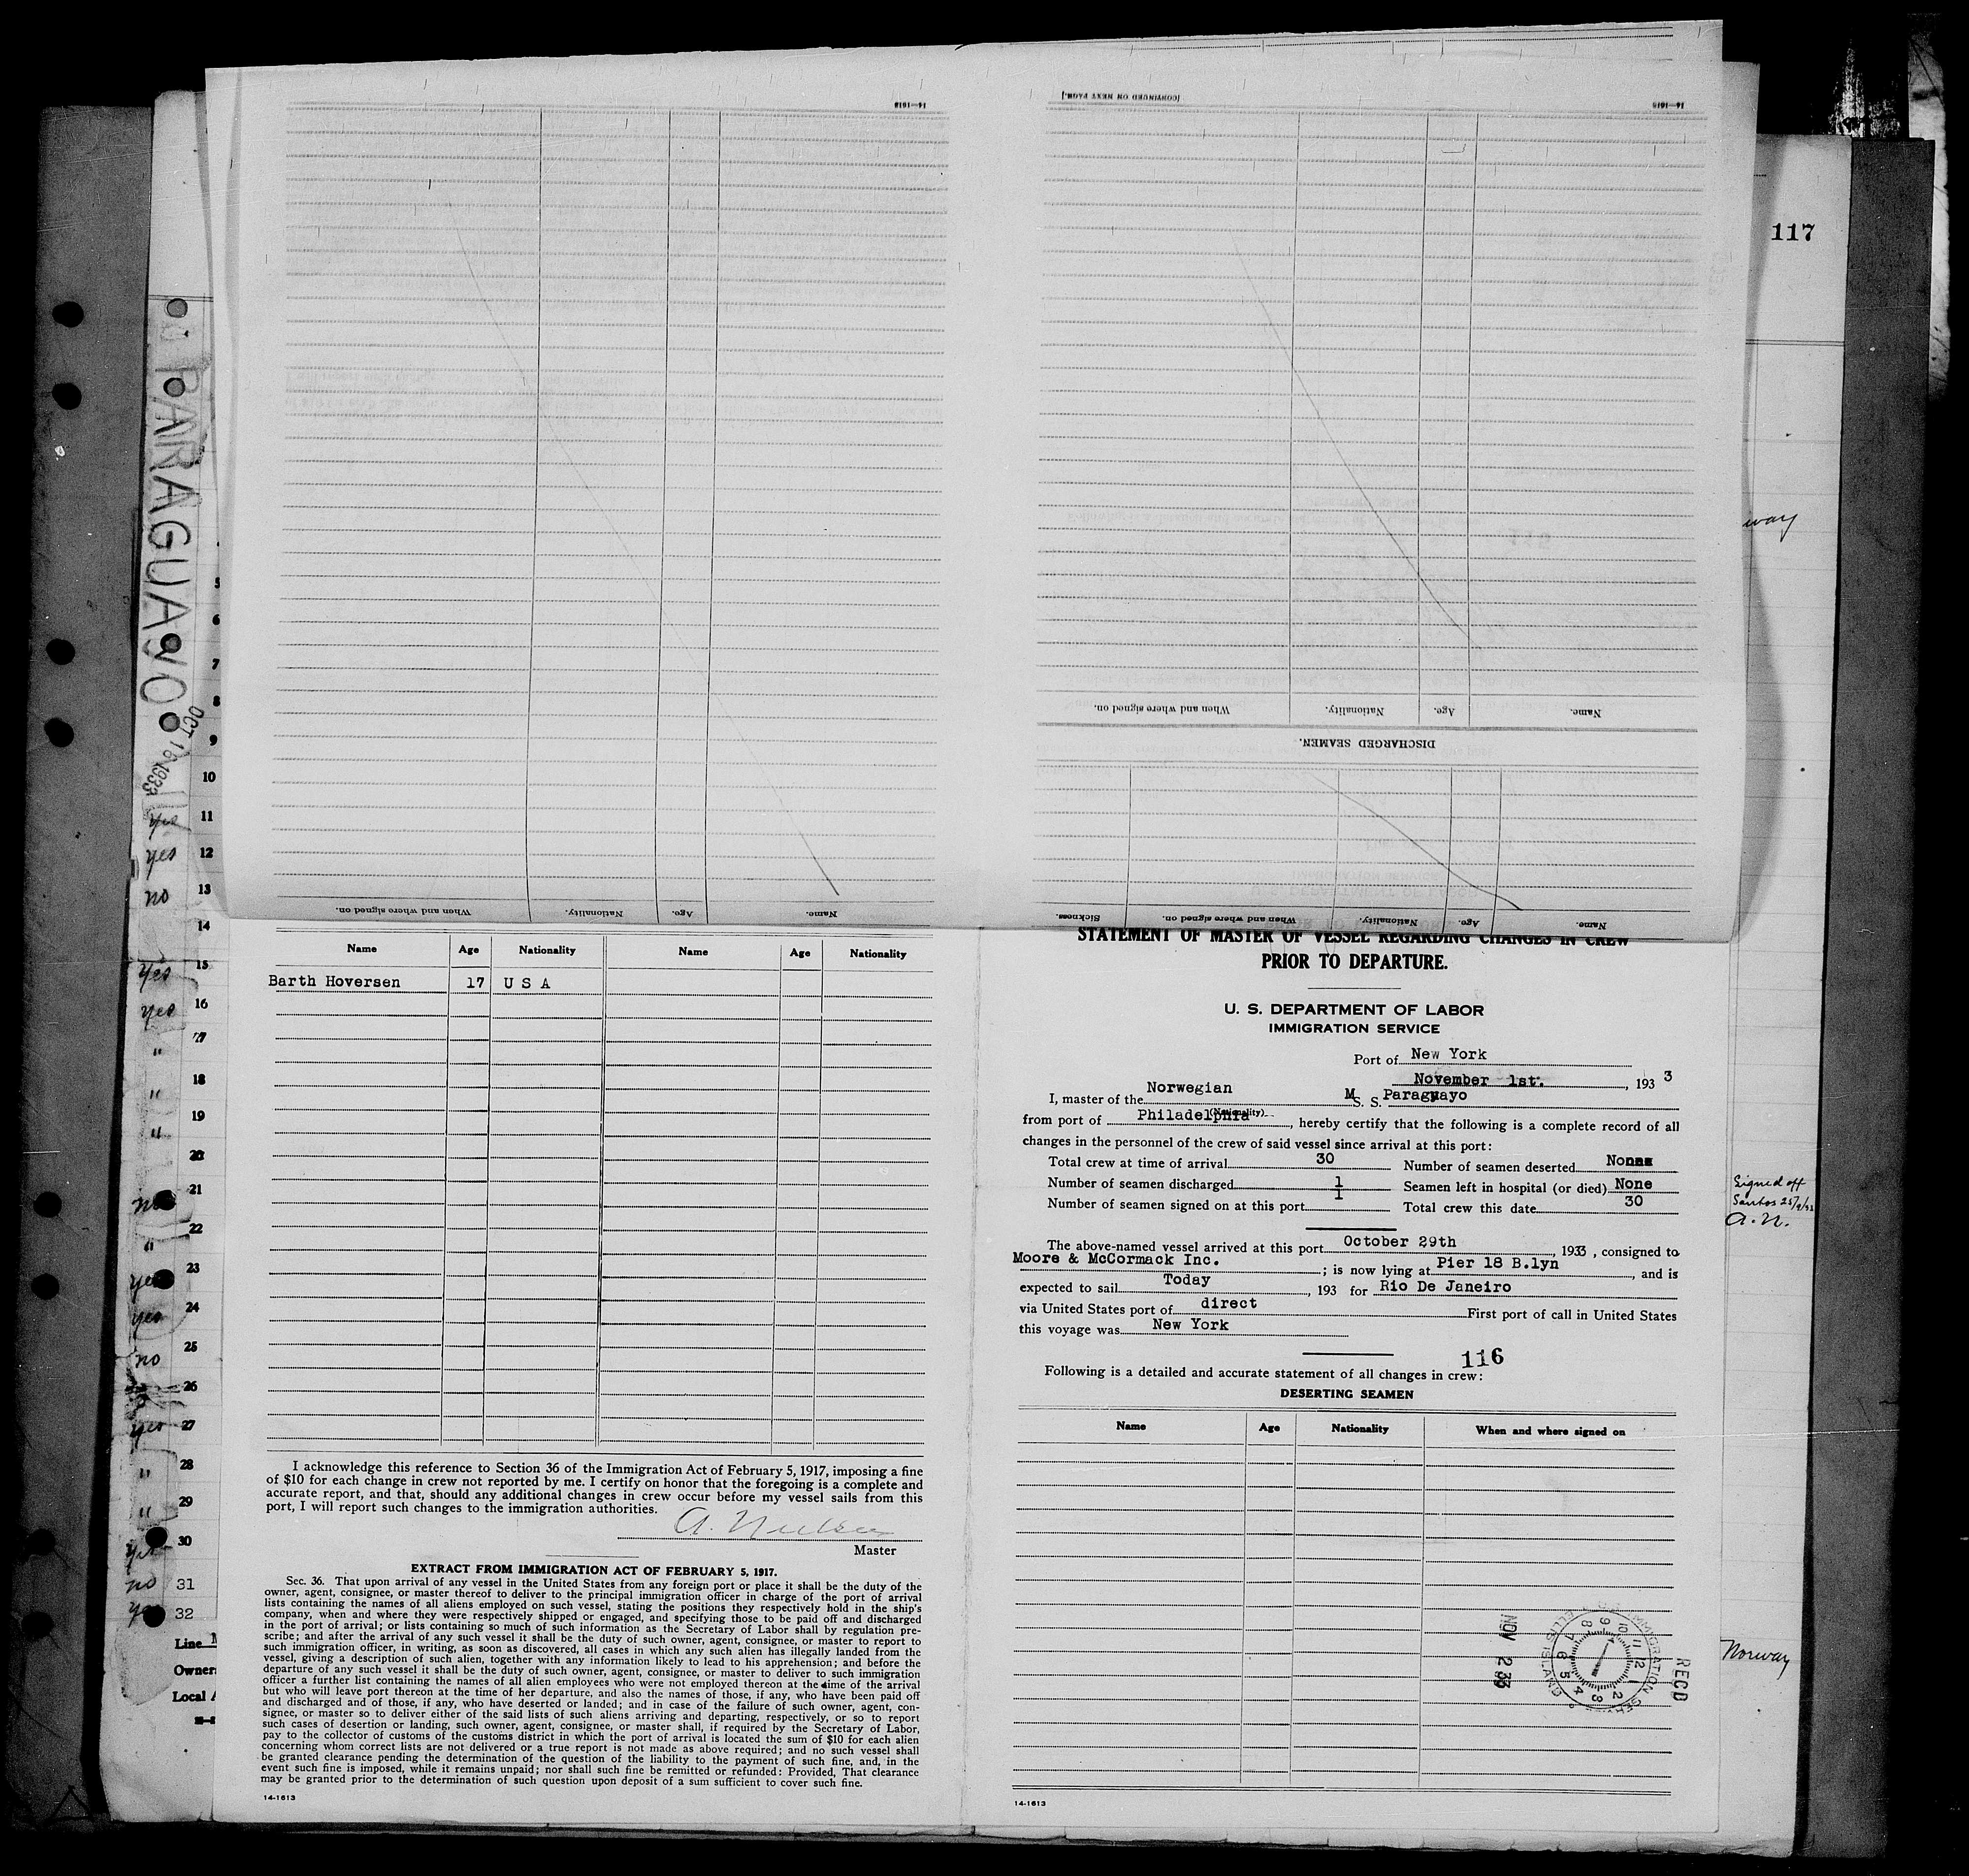 14—1613
[CONTINUED ON NEXT PAGE.]
14—1613
117
PARAGUAYO
OCT 18 1933
way
5
6
7
8
9
10
yes 11
yes 12
no 13
14
yes 15
yes 16
" 17
18
" 19
" 20
no 21
" 22
yes 23
yes 24
no 25
26
yes 27
" 28
" 29
yes 30
no 31
yes 32
Line
Owner
Local A
When and where signed on.
Nationality.
Age.
Name.
DISCHARGED SEAMEN.
Sickness.
When and where signed on.
Nationality.
Age.
Name.
When and where signed on.
Nationality.
Age.
Name.
Name Age Nationality Name Age Nationality
Barth Hoversen 17 U S A
I acknowledge this reference to Section 36 of the Immigration Act of February 5, 1917, imposing a fine
of $10 for each change in crew not reported by me. I certify on honor that the foregoing is a complete and
accurate report, and that, should any additional changes in crew occur before my vessel sails from this
port, I will report such changes to the immigration authorities.
A. Neilsen
Master
EXTRACT FROM IMMIGRATION ACT OF FEBRUARY 5, 1917.
Sec. 36. That upon arrival of any vessel in the United States from any foreign port or place it shall be the duty of the
owner, agent, consignee, or master thereof to deliver to the principal immigration officer in charge of the port of arrival
lists containing the names of all aliens employed on such vessel, stating the positions they respectively hold in the ship's
company, when and where they were respectively shipped or engaged, and specifying those to be paid off and discharged
in the port of arrival; or lists containing so much of such information as the Secretary of Labor shall by regulation pre-
scribe; and after the arrival of any such vessel it shall be the duty of such owner, agent, consignee, or master to report to
such immigration officer, in writing, as soon as discovered, all cases in which any such alien has illegally landed from the
vessel, giving a description of such alien, together with any information likely to lead to his apprehension; and before the
departure of any such vessel it shall be the duty of such owner, agent, consignee, or master to deliver to such immigration
officer a further list containing the names of all alien employees who were not employed thereon at the time of the arrival
but who will leave port thereon at the time of her departure, and also the names of those, if any, who have been paid off
and discharged and of those, if any, who have deserted or landed; and in case of the failure of such owner, agent, con-
signee, or master so to deliver either of the said lists of such aliens arriving and departing, respectively, or so to report
such cases of desertion or landing, such owner, agent, consignee, or master shall, if required by the Secretary of Labor,
pay to the collector of customs of the customs district in which the port of arrival is located the sum of $10 for each alien
concerning whom correct lists are not delivered or a true report is not made as above required; and no such vessel shall
be granted clearance pending the determination of the question of the liability to the payment of such fine, and, in the
event such fine is imposed, while it remains unpaid; nor shall such fine be remitted or refunded: Provided, That clearance
may be granted prior to the determination of such question upon deposit of a sum sufficient to cover such fine.
14-1613
STATEMENT OF MASTER OF VESSEL REGARDING CHANGES IN CREW
PRIOR TO DEPARTURE.
U. S. DEPARTMENT OF LABOR
IMMIGRATION SERVICE
Port of New York
November 1st. , 193 3
I, master of the Norwegian M S. S. Paraguayo
(Nationality)
from port of Philadelphia , hereby certify that the following is a complete record of all
changes in the personnel of the crew of said vessel since arrival at this port:
Total crew at time of arrival 30 Number of seamen deserted None
Number of seamen discharged 1 Seamen left in hospital (or died) None
Number of seamen signed on at this port 1 Total crew this date 30
The above-named vessel arrived at this port October 29th , 1933 , consigned to
Moore & McCormack Inc. ; is now lying at Pier 18 B.lyn , and is
expected to sail Today , 193 for Rio De Janeiro
via United States port of direct First port of call in United States
this voyage was New York
116
Following is a detailed and accurate statement of all changes in crew:
DESERTING SEAMEN
Name Age Nationality When and where signed on
NOV 2 33
IMMIGRATION SERVICE ELLIS ISLAND
12 1 2 3 4 5 6 7 8 9 10 11
RECD
14-1613
Signed off
Santos
A.N.
Norway